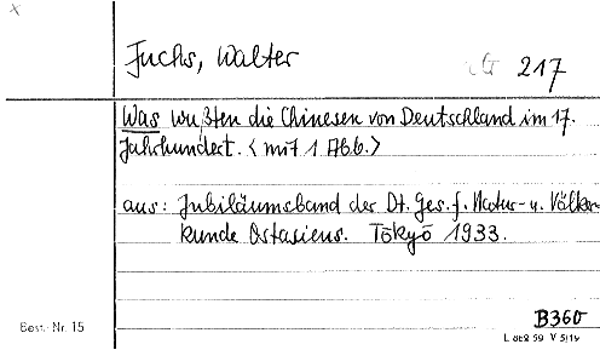 x
Fuchs, Walter
G 217
Was wußten die Chinesen von Deutschland im 17.
Jahrhundert. <mit 1 Abb.>
aus: Jubiläumsband der Dt. Ges. f. Natur- u. Völker-
kunde Ostasiens. Tōkyō 1933.
B360
Best.-Nr. 15